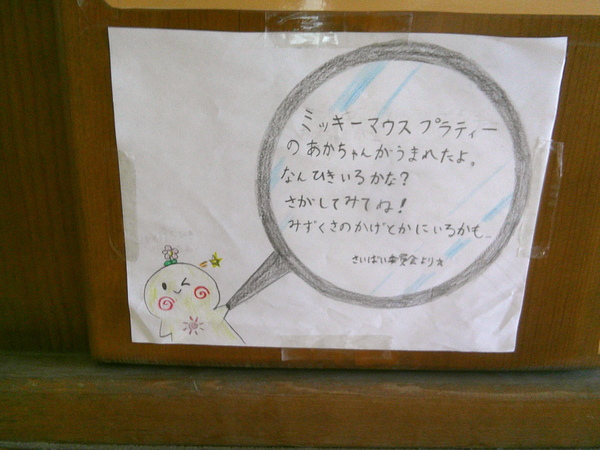 ミッキーマウスプラティー
のあかちゃんがうまれたよ。
なんひきいるかな?
さがしてみてね!
みずくさのかげとかにいるかも…
さいばい委員会より☆